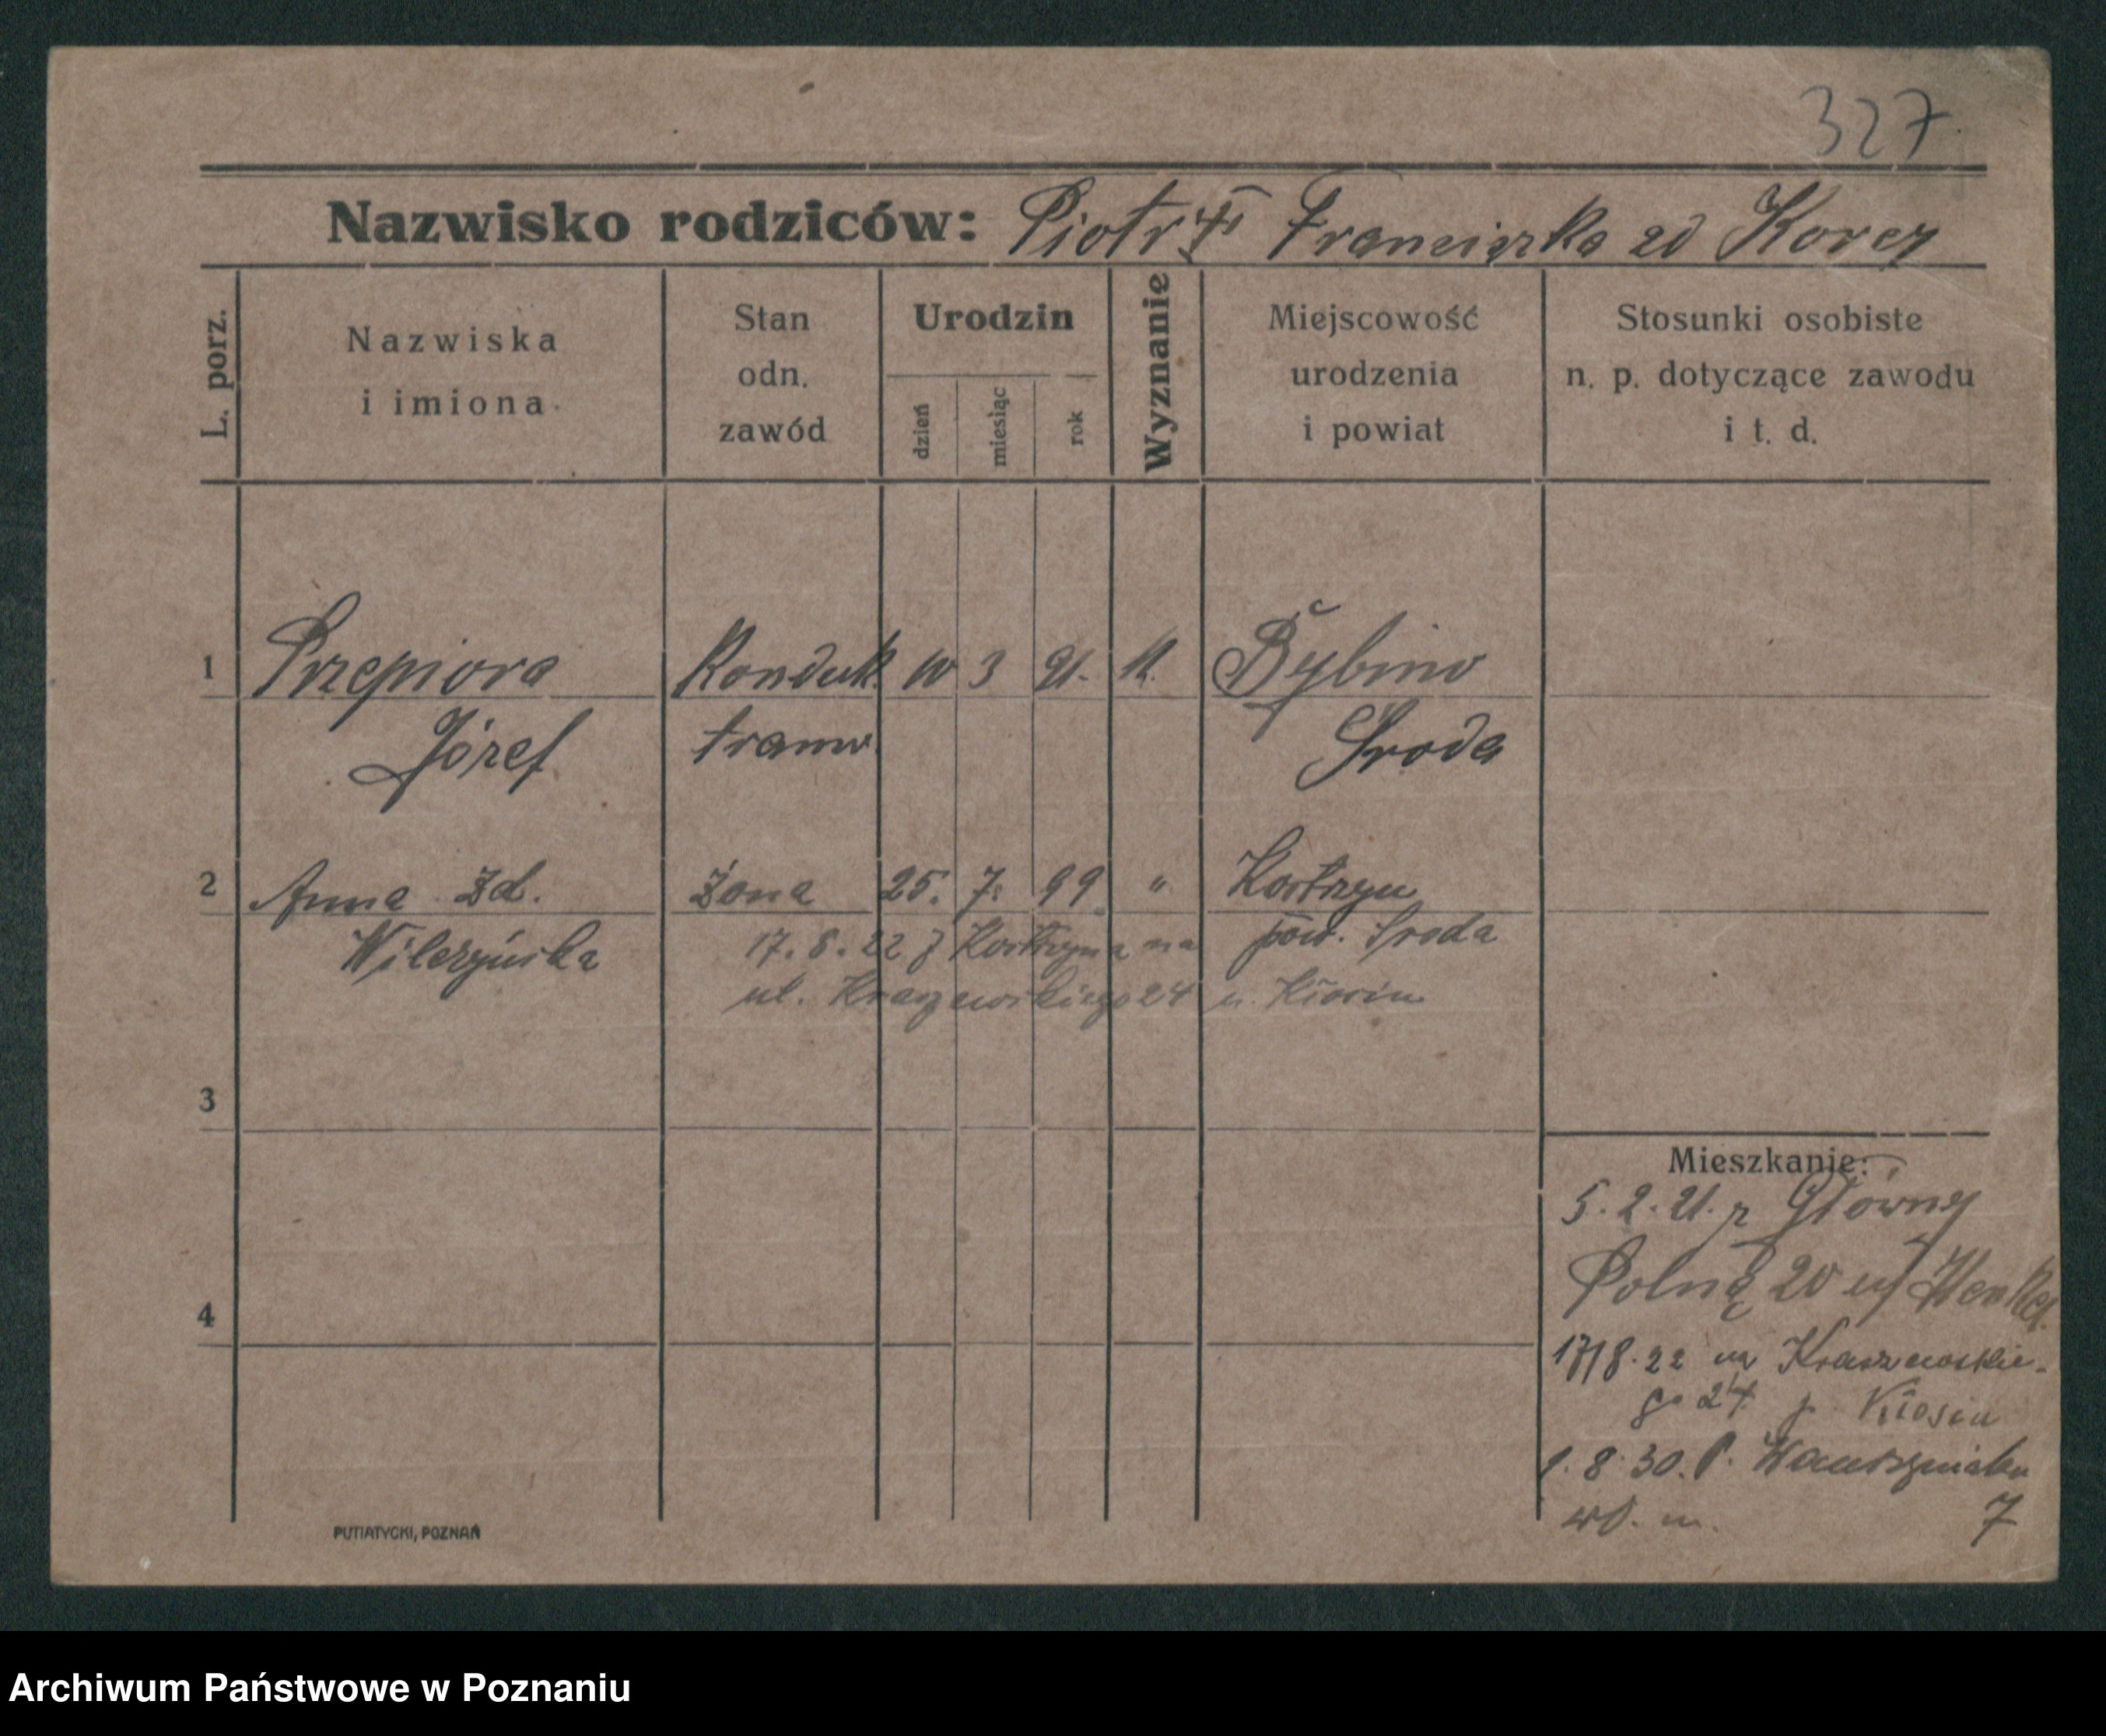 327.
Nazwisko rodziców: Piotr Franciszka zd Korcz
L. porz.
Nazwiska
i imiona
Stan
odn.
zawód
Urodzin
dzień
miesiąc
rok
Wyznanie
Miejscowość
urodzenia
i powiat
Stosunki osobiste
n. p. dotyczące zawodu
i t. d.
1 Przepiora Konduk. 10 3 91. K.
Józef tramw. Środa
2 Anna zd. żona 25. 7. 99 " Kostrzyn
Wilczyńska pow. Środa
17. 8. 22 z Kostrzyna na
ul. Kraszewskiego 24
3
Mieszkanie:
5. 2. 21. z Główny
4 Polną 20
17/8. 22 Kraszewskie-
go 24
1. 8. 30. P. Wawrzyniaka
7
PUTIATYCKI, POZNAŃ
Archiwum Państwowe w Poznaniu